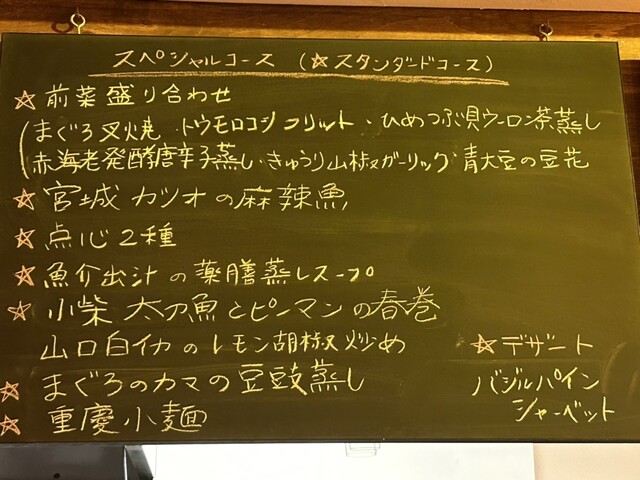 スペシャルコース （☆スタンダードコース）
☆前菜盛り合わせ
（まぐろ叉焼・トウモロコシフリット・ひめつぶ貝ウーロン茶蒸し
赤海老発酵唐辛子蒸し・きゅうり山椒ガーリック・青大豆の豆花
☆宮城カツオの麻辣魚
☆点心2種
☆魚介出汁の薬膳蒸しスープ
☆小柴 太刀魚とピーマンの春巻
山口白イカのレモン胡椒炒め
☆まぐろのカマの豆豉蒸し
☆重慶小麺
☆デザート
バジルパイン
シャーベット